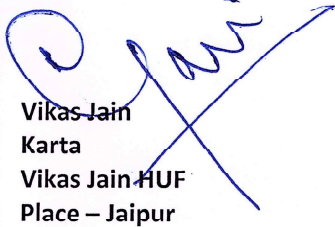 Vikas Jain
Karta
Vikas Jain HUF
Place – Jaipur